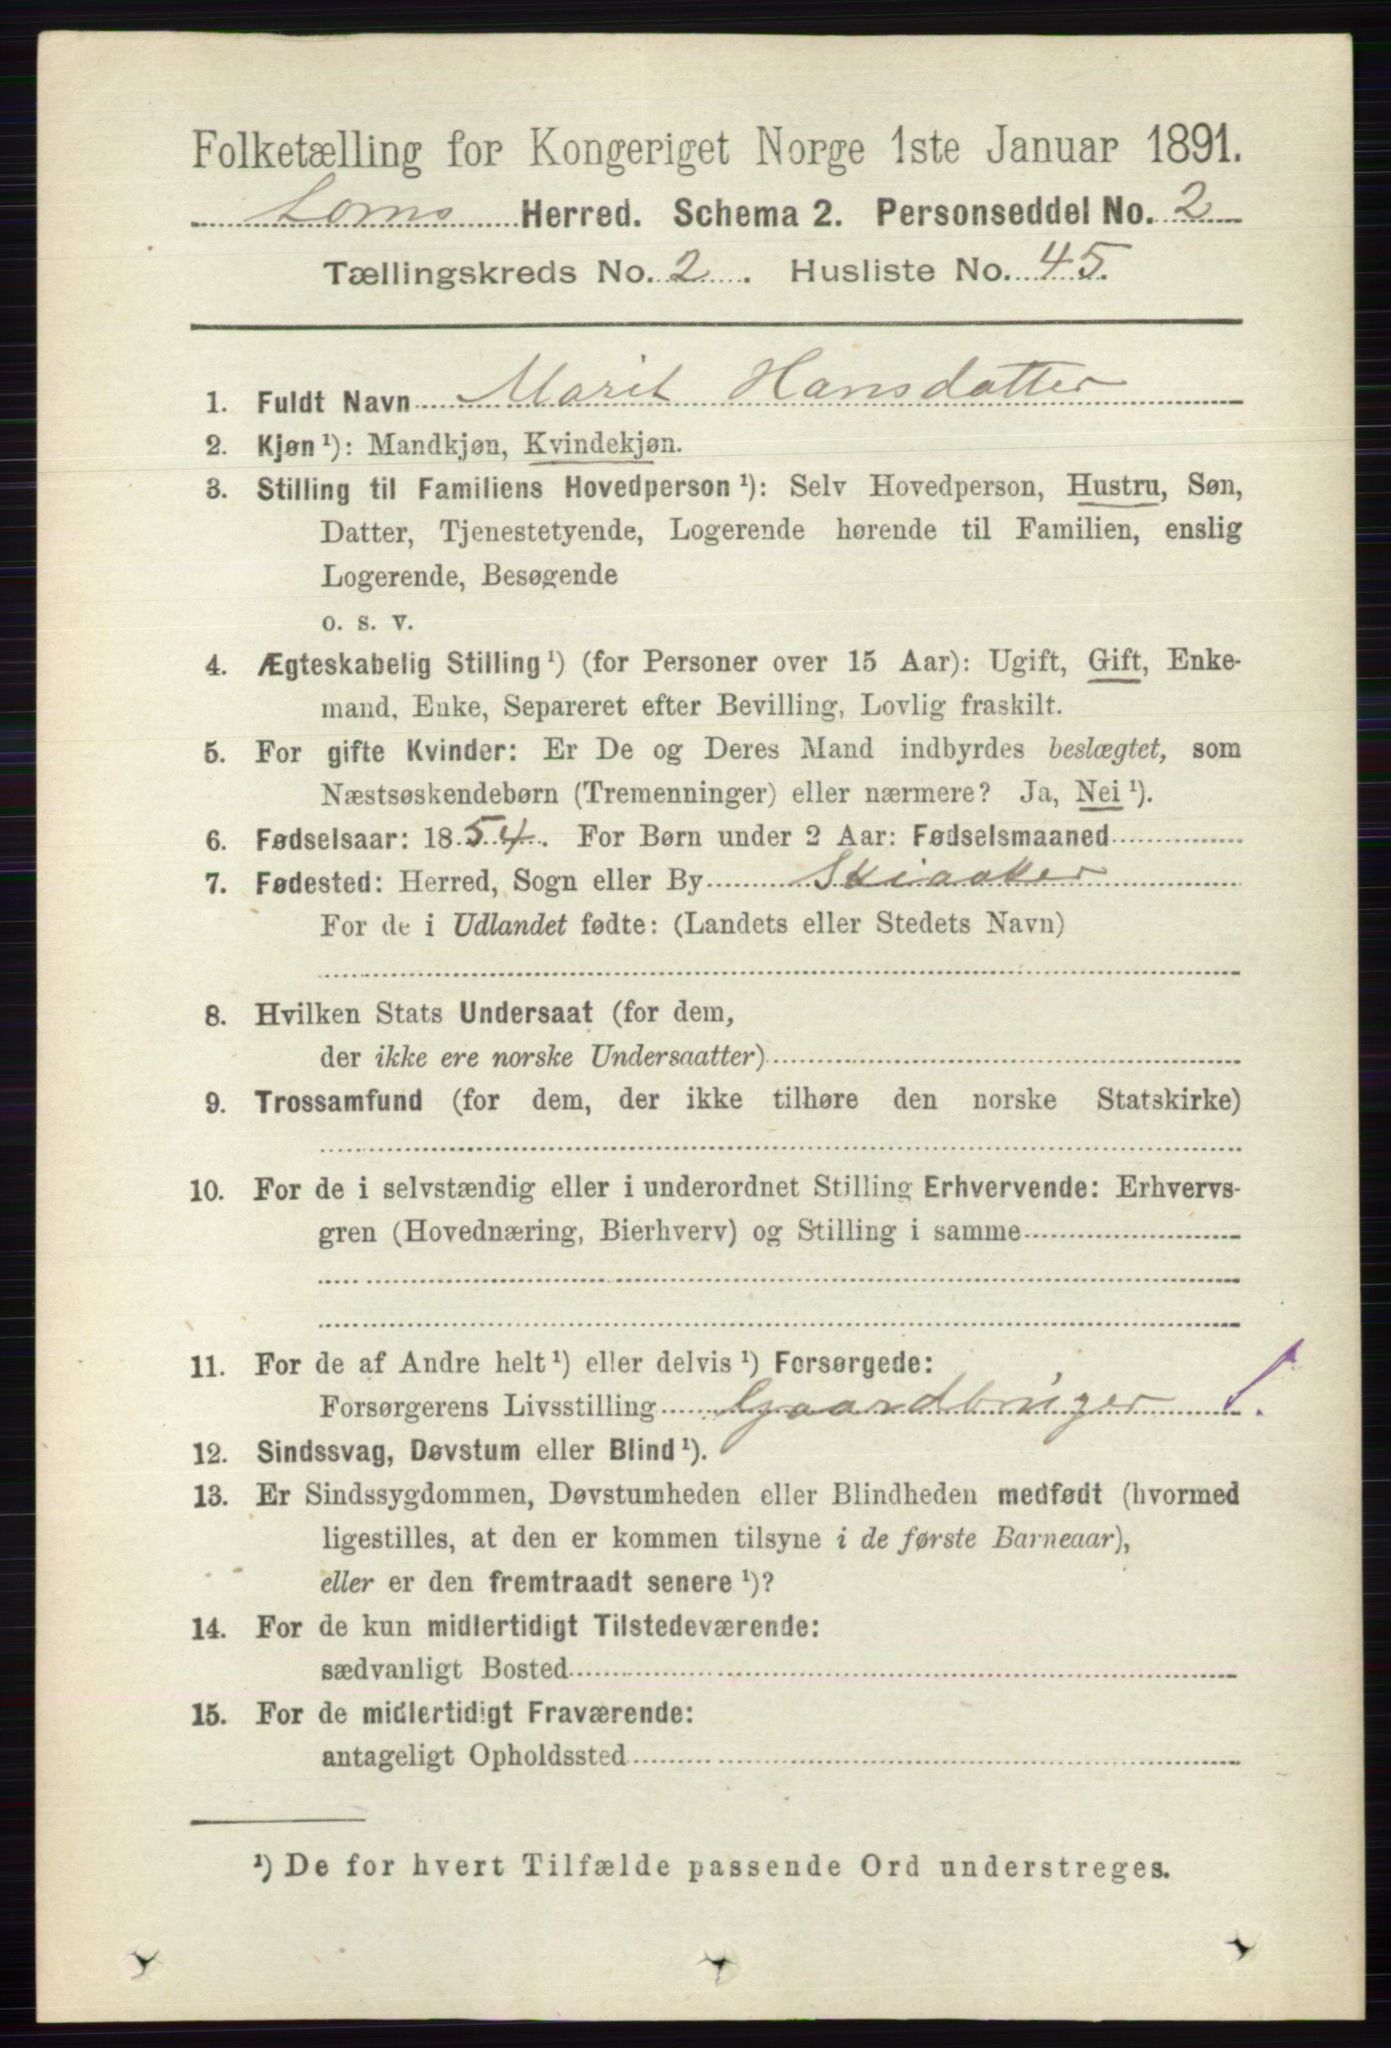 Folketælling for Kongeriget Norge 1ste Januar 1891.
Loms Herred. Schema 2. Personseddel No. 2
Tællingskreds No. 2. Husliste No. 45.
1. Fuldt Navn Marit Hansdatter
2. Kjøn ¹): Mandkjøn, Kvindekjøn.
3. Stilling til Familiens Hovedperson ¹): Selv Hovedperson, Hustru, Søn,
Datter, Tjenestetyende, Logerende hørende til Familien, enslig
Logerende, Besøgende
o. s. v.
4. Ægteskabelig Stilling ¹) (for Personer over 15 Aar): Ugift, Gift, Enke-
mand, Enke, Separeret efter Bevilling, Lovlig fraskilt.
5. For gifte Kvinder: Er De og Deres Mand indbyrdes beslægtet, som
Næstsøskendebørn (Tremenninger) eller nærmere? Ja, Nei ¹).
6. Fødselsaar: 1854. For Børn under 2 Aar: Fødselsmaaned
7. Fødested: Herred, Sogn eller By Skiaaker
For de i Udlandet fødte: (Landets eller Stedets Navn)
8. Hvilken Stats Undersaat (for dem,
der ikke ere norske Undersaatter)
9. Trossamfund (for dem, der ikke tilhøre den norske Statskirke)
10. For de i selvstændig eller i underordnet Stilling Erhvervende: Erhvervs-
gren (Hovednæring, Bierhverv) og Stilling i samme
11. For de af Andre helt ¹) eller delvis ¹) Forsørgede:
Forsørgerens Livsstilling Gaardbruger
12. Sindssvag, Døvstum eller Blind ¹).
13. Er Sindssygdommen, Døvstumheden eller Blindheden medfødt (hvormed
ligestilles, at den er kommen tilsyne i de første Barneaar),
eller er den fremtraadt senere ¹)?
14. For de kun midlertidigt Tilstedeværende:
sædvanligt Bosted
15. For de midlertidigt Fraværende:
antageligt Opholdssted
¹) De for hvert Tilfælde passende Ord understreges.